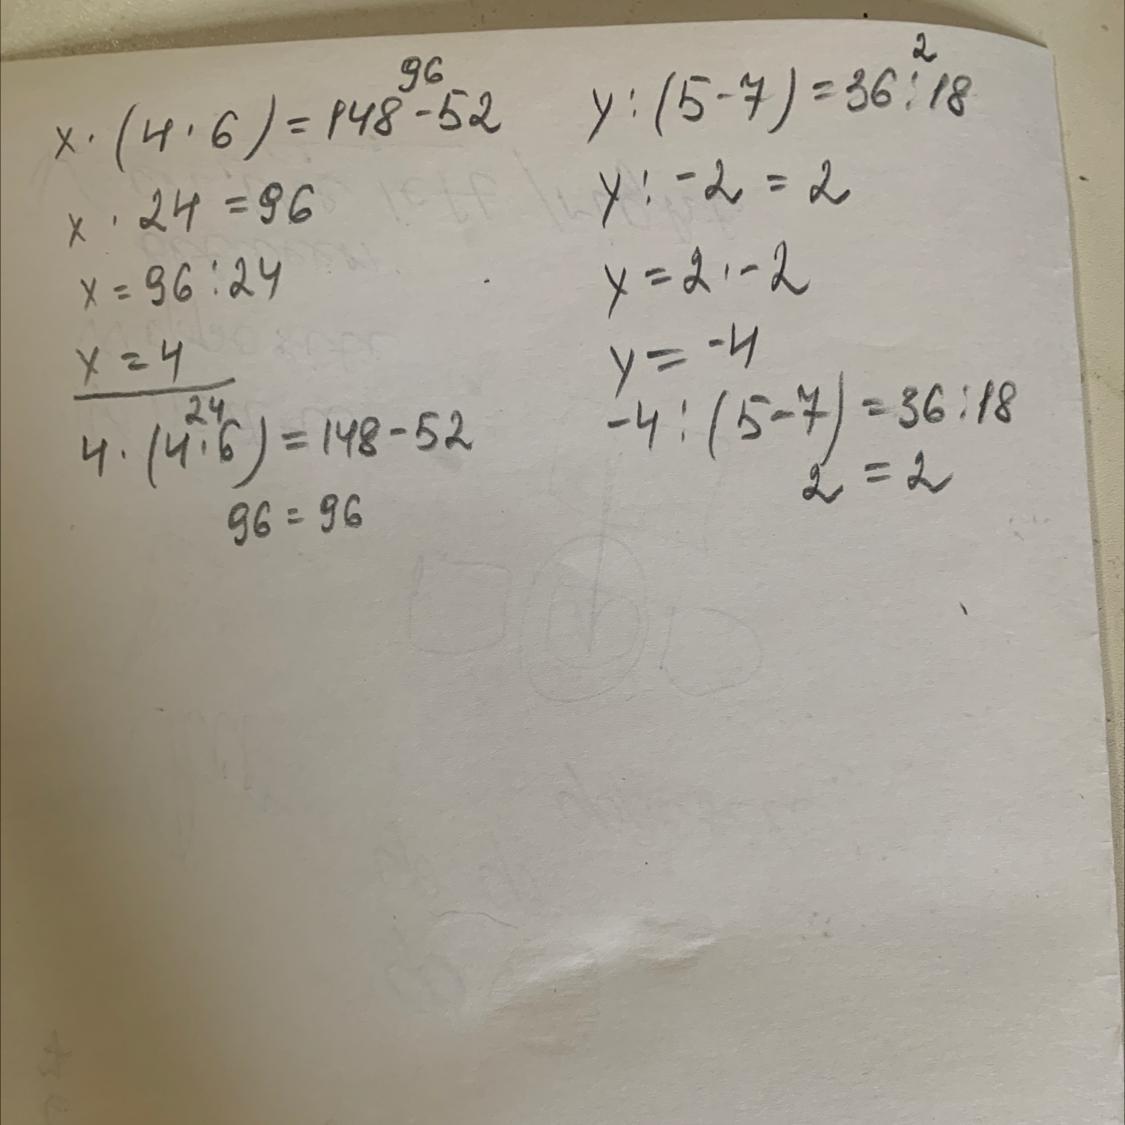 96
x · (4 · 6) = 148 - 52
x · 24 = 96
x = 96 : 24
x = 4
24
4 · (4 · 6) = 148 - 52
96 = 96
2
y : (5 - 7) = 36 : 18
y : -2 = 2
y = 2 · -2
y = -4
-4 : (5 - 7) = 36 : 18
2 = 2